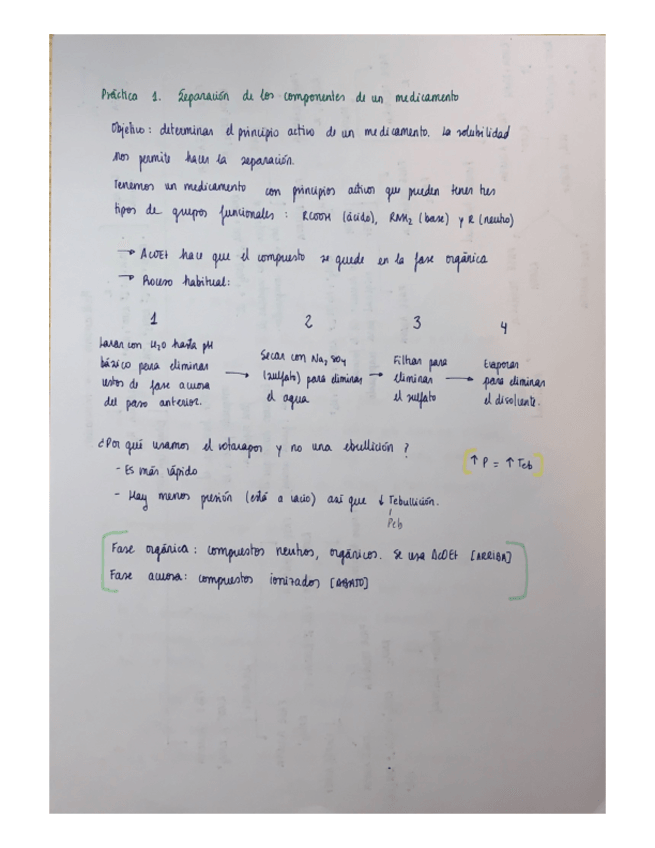 Práctica 1. Separación de los componentes de un medicamento
Objetivo: determinar el principio activo de un medicamento. La solubilidad
nos permite hacer la separación.
Tenemos un medicamento con principios activos que pueden tener tres
tipos de grupos funcionales: RCOOH (ácido), RNH₂ (base) y R (neutro)
→ AcOEt hace que el compuesto se quede en la fase orgánica
→ Proceso habitual:
1 2 3 4
Lavar con H₂O hasta pH
básico para eliminar
restos de fase acuosa
del paso anterior.
→
Secar con Na₂SO₄
(sulfato) para eliminar
el agua
→
Filtrar para
eliminar
el sulfato
→
Evaporar
para eliminar
el disolvente.
¿Por qué usamos el rotavapor y no una ebullición?
- Es más rápido
[↑ P = ↑ Teb]
- Hay menos presión (está a vacío) así que ↓ Tebullición.
Peb
[Fase orgánica: compuestos neutros, orgánicos. Se usa AcOEt [ARRIBA]
Fase acuosa: compuestos ionizados [ABAJO]]